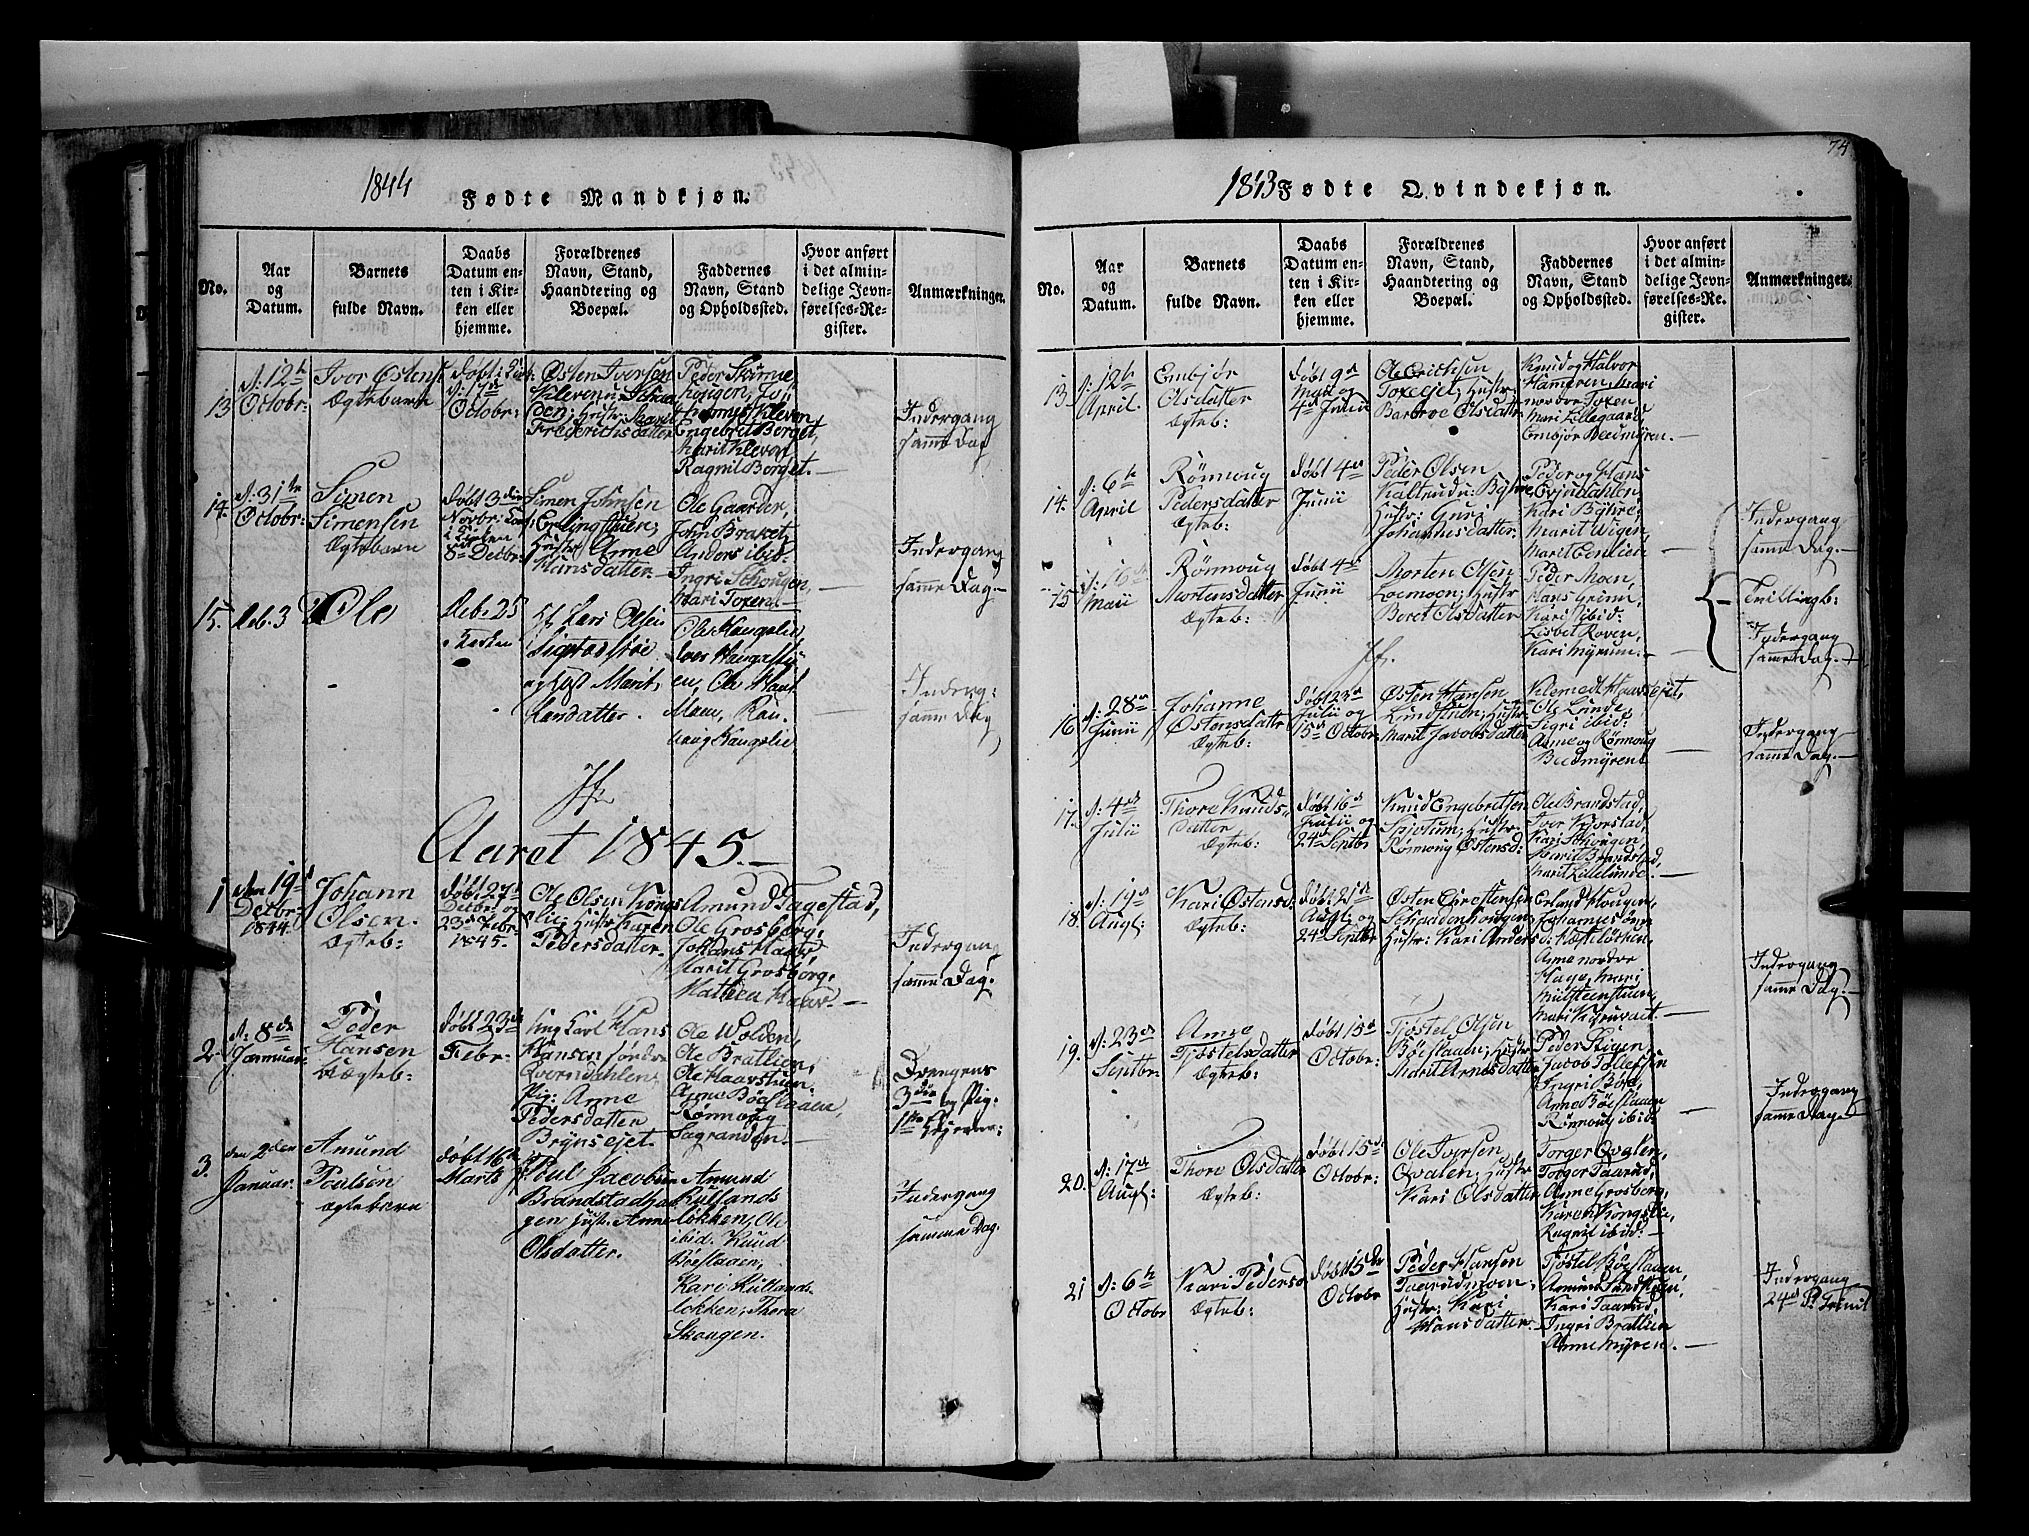 1844
Fødte Mandkjøn.
No.
Aar
og
Datum.
Barnets
fulde Navn.
Daabs
Datum en-
ten i Kir-
ken eller
hjemme.
Forældrenes
Navn, Stand,
Haandtering og
Boepæl.
Faddernes
Navn, Stand
og Opholdssted.
Hvor anført
i det almin-
delige Jevn-
førelses-Re-
gister.
Anmærkninger.
13
d: 12te
Octobr:
Ivor Østens.
Ægtebarn
Døbt
d: 17de
Octobr:
Østen Iversen
Kleven
Hustr: Marit
Frederichsdatter
Peder
Kleven
Engebret Berget,
Marit Kleven
Ragnil Berget.—
Indergang
samme Dag
14.
d: 31te
Octobr:
Simen
Simensen
Ægtebarn
døbt 3die
Novbr:
8de Decbr:
Simen Johnsen
Hustr: Anne
Hansdatter.—
Ole Gaarder,
John Braket,
Anders ibid:
Ingri Schougen,
Mari Toxen.—
Indergang
samme Dag.—
15.
Dcb. 3
Ole
Dcb. 25
i Kirken
Lars Olsen
og Hust Marit
Larsdatter.
Ole Haugslie
Moen, Rau
naug Haugslie
Inderg:
samme Dag
Aaret 1845.—
1
den 19de
Decbr
1844.
Johann
Olsen.
Ægteb:
døbt 27de
Decbr og
23de Febr
1845.
Ole Olsen Kongs
lie; Hustr Karen
Pedersdatter.—
Amund Fagestad,
Ole Grosberg,
Marit Grosberg,
Mathea Haar.—
Indergang
samme Dag.
2.
d: 8de
Januar:
Peder
Hansen
Uægteb:
døbt 23de
Febr:
Ung Karl Hans
Hansen søndre
Qverndahlen;
Pig: Anne
Pedersdatter
Brynsejet.
Ole Wolden,
Ole Bratlien,
Ole Haavstuen.
Anne Bøeslaaen,
Rønnoug
Sagranden.—
Drengens
3die og Pig:
1ste Leierm:
3.
den 2den
Januar.
Amund
Poulsen
ægtebarn
døbt 16de
Marts
Poul Jacobsen
Brandstadhau
gen Hust. Anne
Olsdatter.
Amund
Kullands
løkken, Ole
ibid. Knud
Bøeslaaen,
Kari Kullands
løkken, Thora
Skougen.
Indergang
samme Dag.
74
1843
Fødte Qvindekjøn.
No.
Aar
og
Datum.
Barnets
fulde Navn.
Daabs
Datum en-
ten i Kir-
ken eller
hjemme.
Forældrenes
Navn, Stand,
Haandtering og
Boepæl.
Faddernes
Navn, Stand
og Opholdssted.
Hvor anført
i det almin-
delige Jevn-
førelses-Re-
gister.
Anmærkninger.
13.
d: 12te
April.
Embjør
Olsdatter
Ægteb:
døbt 9de
Maii og
4de Junii
Ole Erichsen
Toxeejet; Hustr:
Barbroe Olsdatter
Knud og Halvor
Hameren, Mari
nordre Toxen
Mari Lillegaard,
Embjør Beedmyren.—
14.
d: 6te
April
Rønnoug
Pedersdatter
Ægteb:
døbt 4de
Junii
Peder Olsen
Hustr: Guri
Johannesdatter.
Peder og Hans
Kari Byhre,
Marit Wigen,
Marit Eenlien
Indergang
samme Dag.—
15
d: 16de
Maii
Rønnoug
Mortensdatter
Ægteb:
døbt 4de
Junii
Morten Olsen
Loemoen; Hustr
Beret Olsdatter
Peder Moen,
Hans Grinn,
Kari ibid:
Lisbet Roven,
Kari Myrum.—
Tvillingb:
Indergang
samme Dag.—
16
d: 28de
Junii
Johanne
Østensdatter
Ægteb:
døbt 23de
Julii og
15de Octobr:
Østen Hansen
Lundstuen; Hustr
Marit Jacobsdatter
Klemedt Haavsejet,
Ole Lunde,
Sigri ibid:
Anne og Rønnoug
Beedmyren
Indergang
samme Dag.—
17.
d: 4de
Julii
Thore Knuds-
datter
Ægteb:
døbt 16de
Julii og
24de Septbr
Knud Engebretsen
Hustr
Rønnoug Østensd:
Ole Brandstad,
Iver Kjorstad,
Kari Schougen,
Marit Brandstad,
Marit Lillelunde.—
18.
d: 19de
Augl:
Kari Østensd.
Ægteb:
døbt: 21de
Augl: og
24de Septbr
Østen Christensen
Schaadenhougen
Hustr: Kari Andersd:
Erland Hougen
Anne nordre
Hage, Mari
Milsteenstuen,
Indergang
samme Dag.—
19.
d: 23de
Septbr:
Anne
Tjøstelsdatter
Ægteb:
døbt 15de
Octobr:
Tjøstel Olsen
Bøeslaaen; Hustr
Marit Arnesdatter
Peder Stigen,
Jacob Tollefsen
Ingri Bøe,
Anne Bøeslaaen
Rønnoug ibid:
Indergang
samme Dag.—
20.
d: 17de
Augl:
Thore Olsdatter
Ægteb:
døbt 15de
Octobr:
Ole Iversen
Qvalen; Hustr
Kari Olsdatter
Torger Qvalen,
Torger Taarud,
Anne Grosberg,
Karen Kongslie,
Ragnil ibid:—
21
d: 6te
Octobr
Kari Pedersd.
Ægteb:
døbt 15de
Octobr
Peder Hansen
Taarudmoen;
Hustr: Kari
Hansdatter.
Tjøstel Bøeslaaen
Kari Taarud,
Ingri Bratlien
Anne Myren.—
Indergang
24de S. Trinit